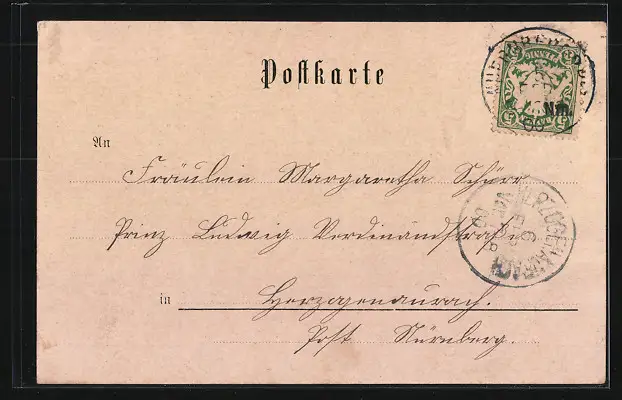 Postkarte
Nm.
An
Fräulein Margaretha Schürr
Prinz Ludwig Verdinandstraße
in Herzogenaurach.
Post Nürnberg.